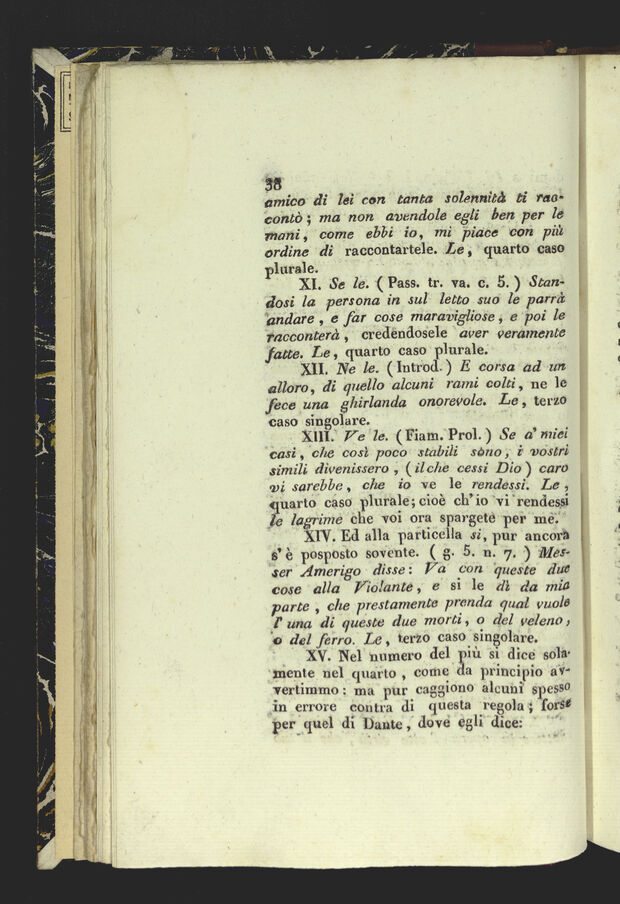 38
amico di lei con tanta solennità ti rac-
contò; ma non avendole egli ben per le
mani, come ebbi io, mi piace con più
ordine di raccontartele. Le, quarto caso
plurale.
XI. Se le. (Pass. tr. va. c. 5.) Stan-
dosi la persona in sul letto suo le parrà
andare, e far cose maravigliose, e poi le
racconterà, credendosele aver veramente
fatte. Le, quarto caso plurale.
XII. Ne le. (Introd.) E corsa ad un
alloro, di quello alcuni rami colti, ne le
fece una ghirlanda onorevole. Le, terzo
caso singolare.
XIII. Ve le. (Fiam. Prol.) Se a' miei
casi, che così poco stabili sono, i vostri
simili divenissero, (ilche cessi Dio) caro
vi sarebbe, che io ve le rendessi. Le,
quarto caso plurale; cioè ch'io vi rendessi
le lagrime che voi ora spargete per me.
XIV. Ed alla particella si, pur ancora
s'è posposto sovente. (g. 5. n. 7.) Mes-
ser Amerigo disse: Va con queste due
cose alla Violante, e si le dì da mia
parte, che prestamente prenda qual vuole
l'una di queste due morti, o del veleno,
o del ferro. Le, terzo caso singolare.
XV. Nel numero del più si dice sola-
mente nel quarto, come da principio av-
vertimmo: ma pur caggiono alcuni spesso
in errore contra di questa regola; forse
per quel di Dante, dove egli dice: